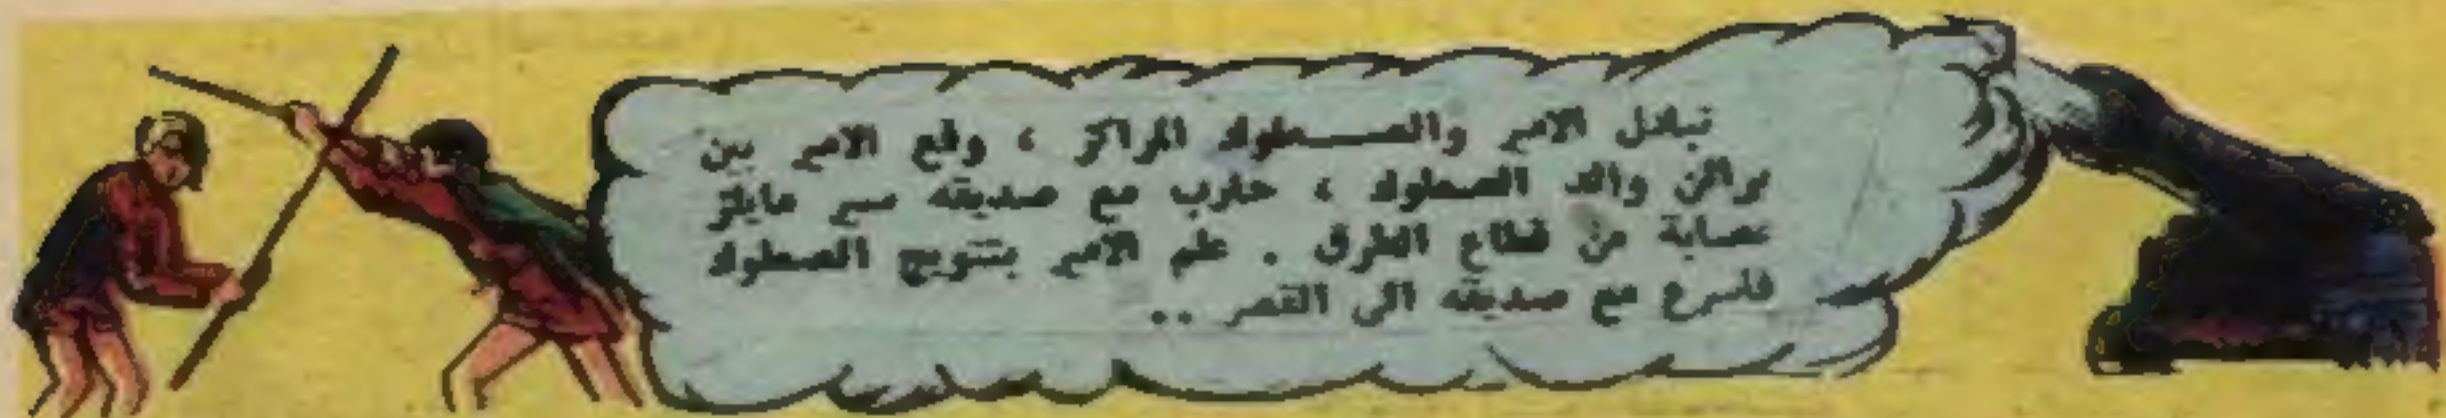 تبادل الامير والصعلوك المراكز ، وقع الامير بين
براثن والد الصعلوك ، حارب مع صديقه سير مايلز
عصابة من قطاع الطرق . علم الامير بتتويج الصعلوك
فاسرع مع صديقه الى القصر ..